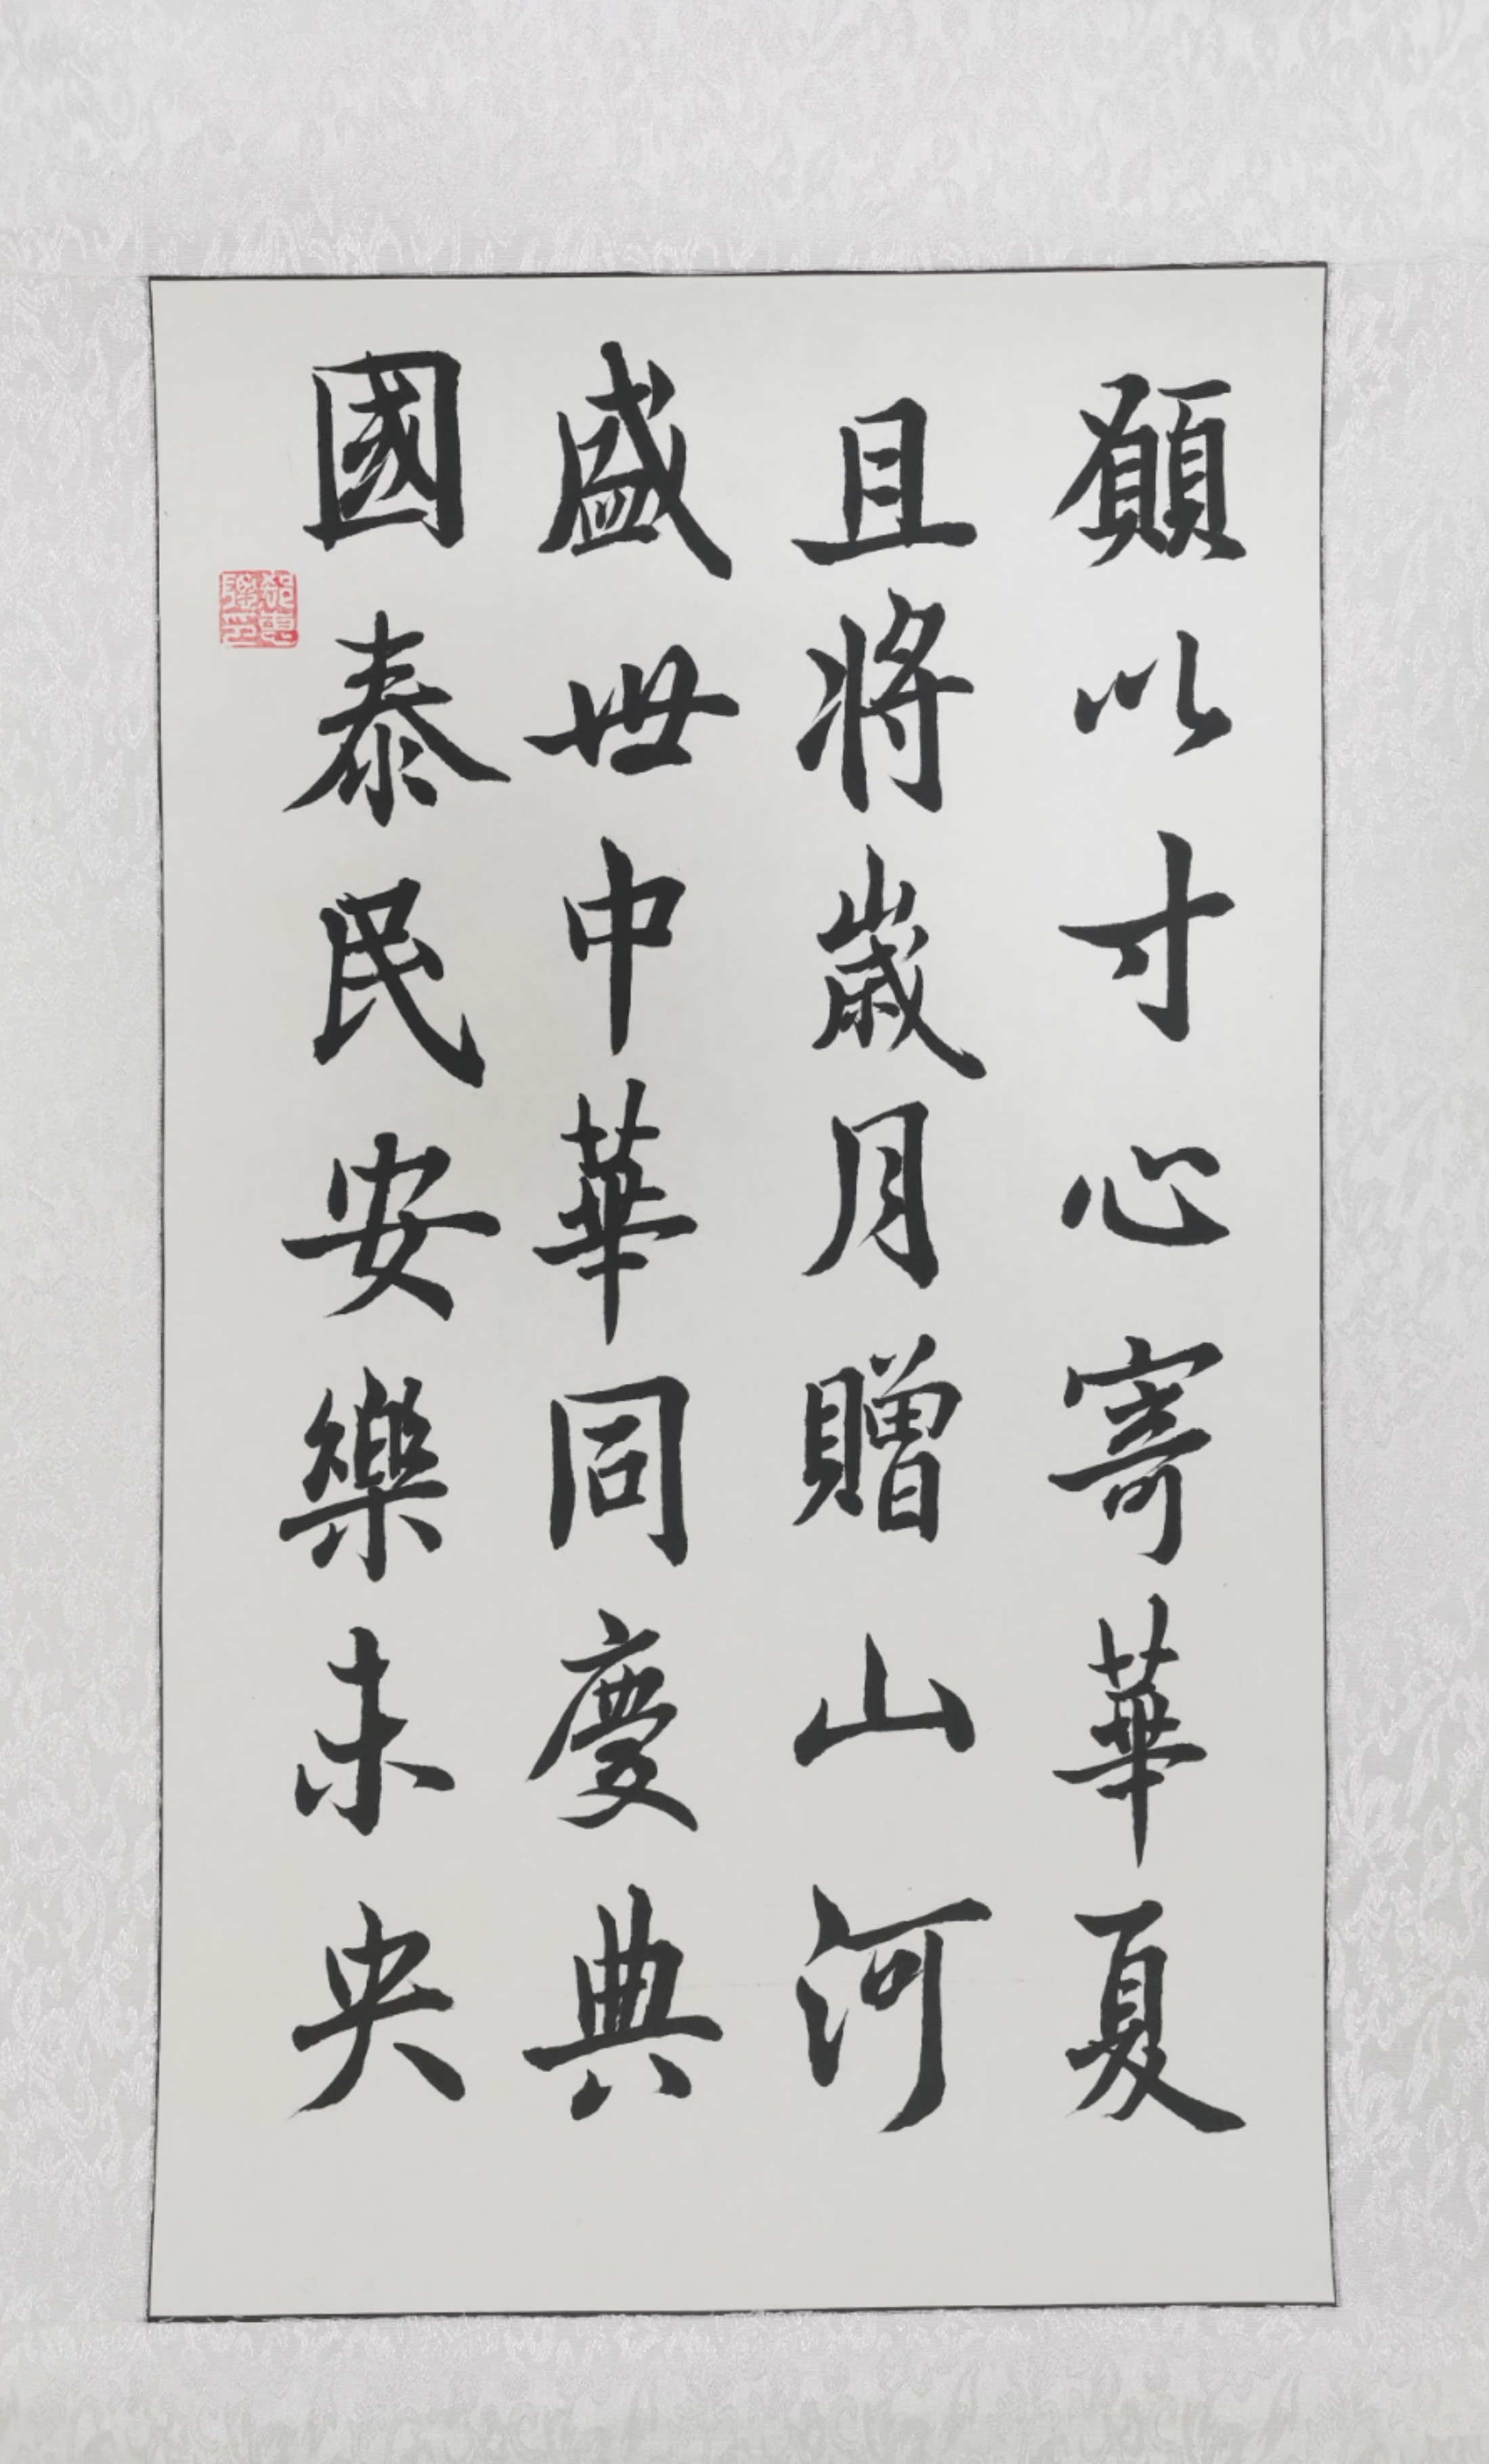 願以寸心寄華夏
且將歲月贈山河
盛世中華同慶典
國泰民安樂未央